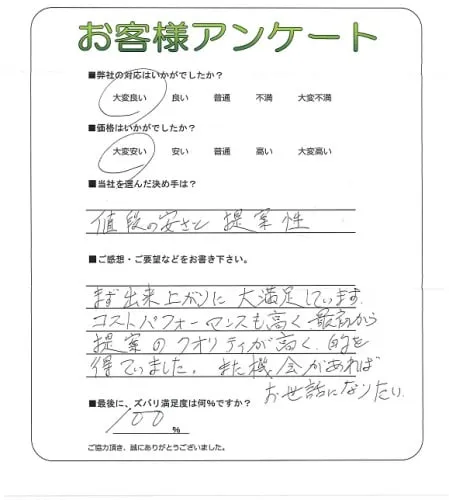 お客様アンケート
■弊社の対応はいかがでしたか？
大変良い 良い 普通 不満 大変不満
■価格はいかがでしたか？
大変安い 安い 普通 高い 大変高い
■当社を選んだ決め手は？
値段の安さと 提案性
■ご感想・ご要望などをお書き下さい。
まず出来上がりに 大満足しています。
コストパフォーマンスも高く、最初から
提案のクオリティが高く、的を
得ていました。また機会があれば
お世話になりたい。
■最後に、ズバリ満足度は何%ですか？
100 %
ご協力頂き、誠にありがとうございました。